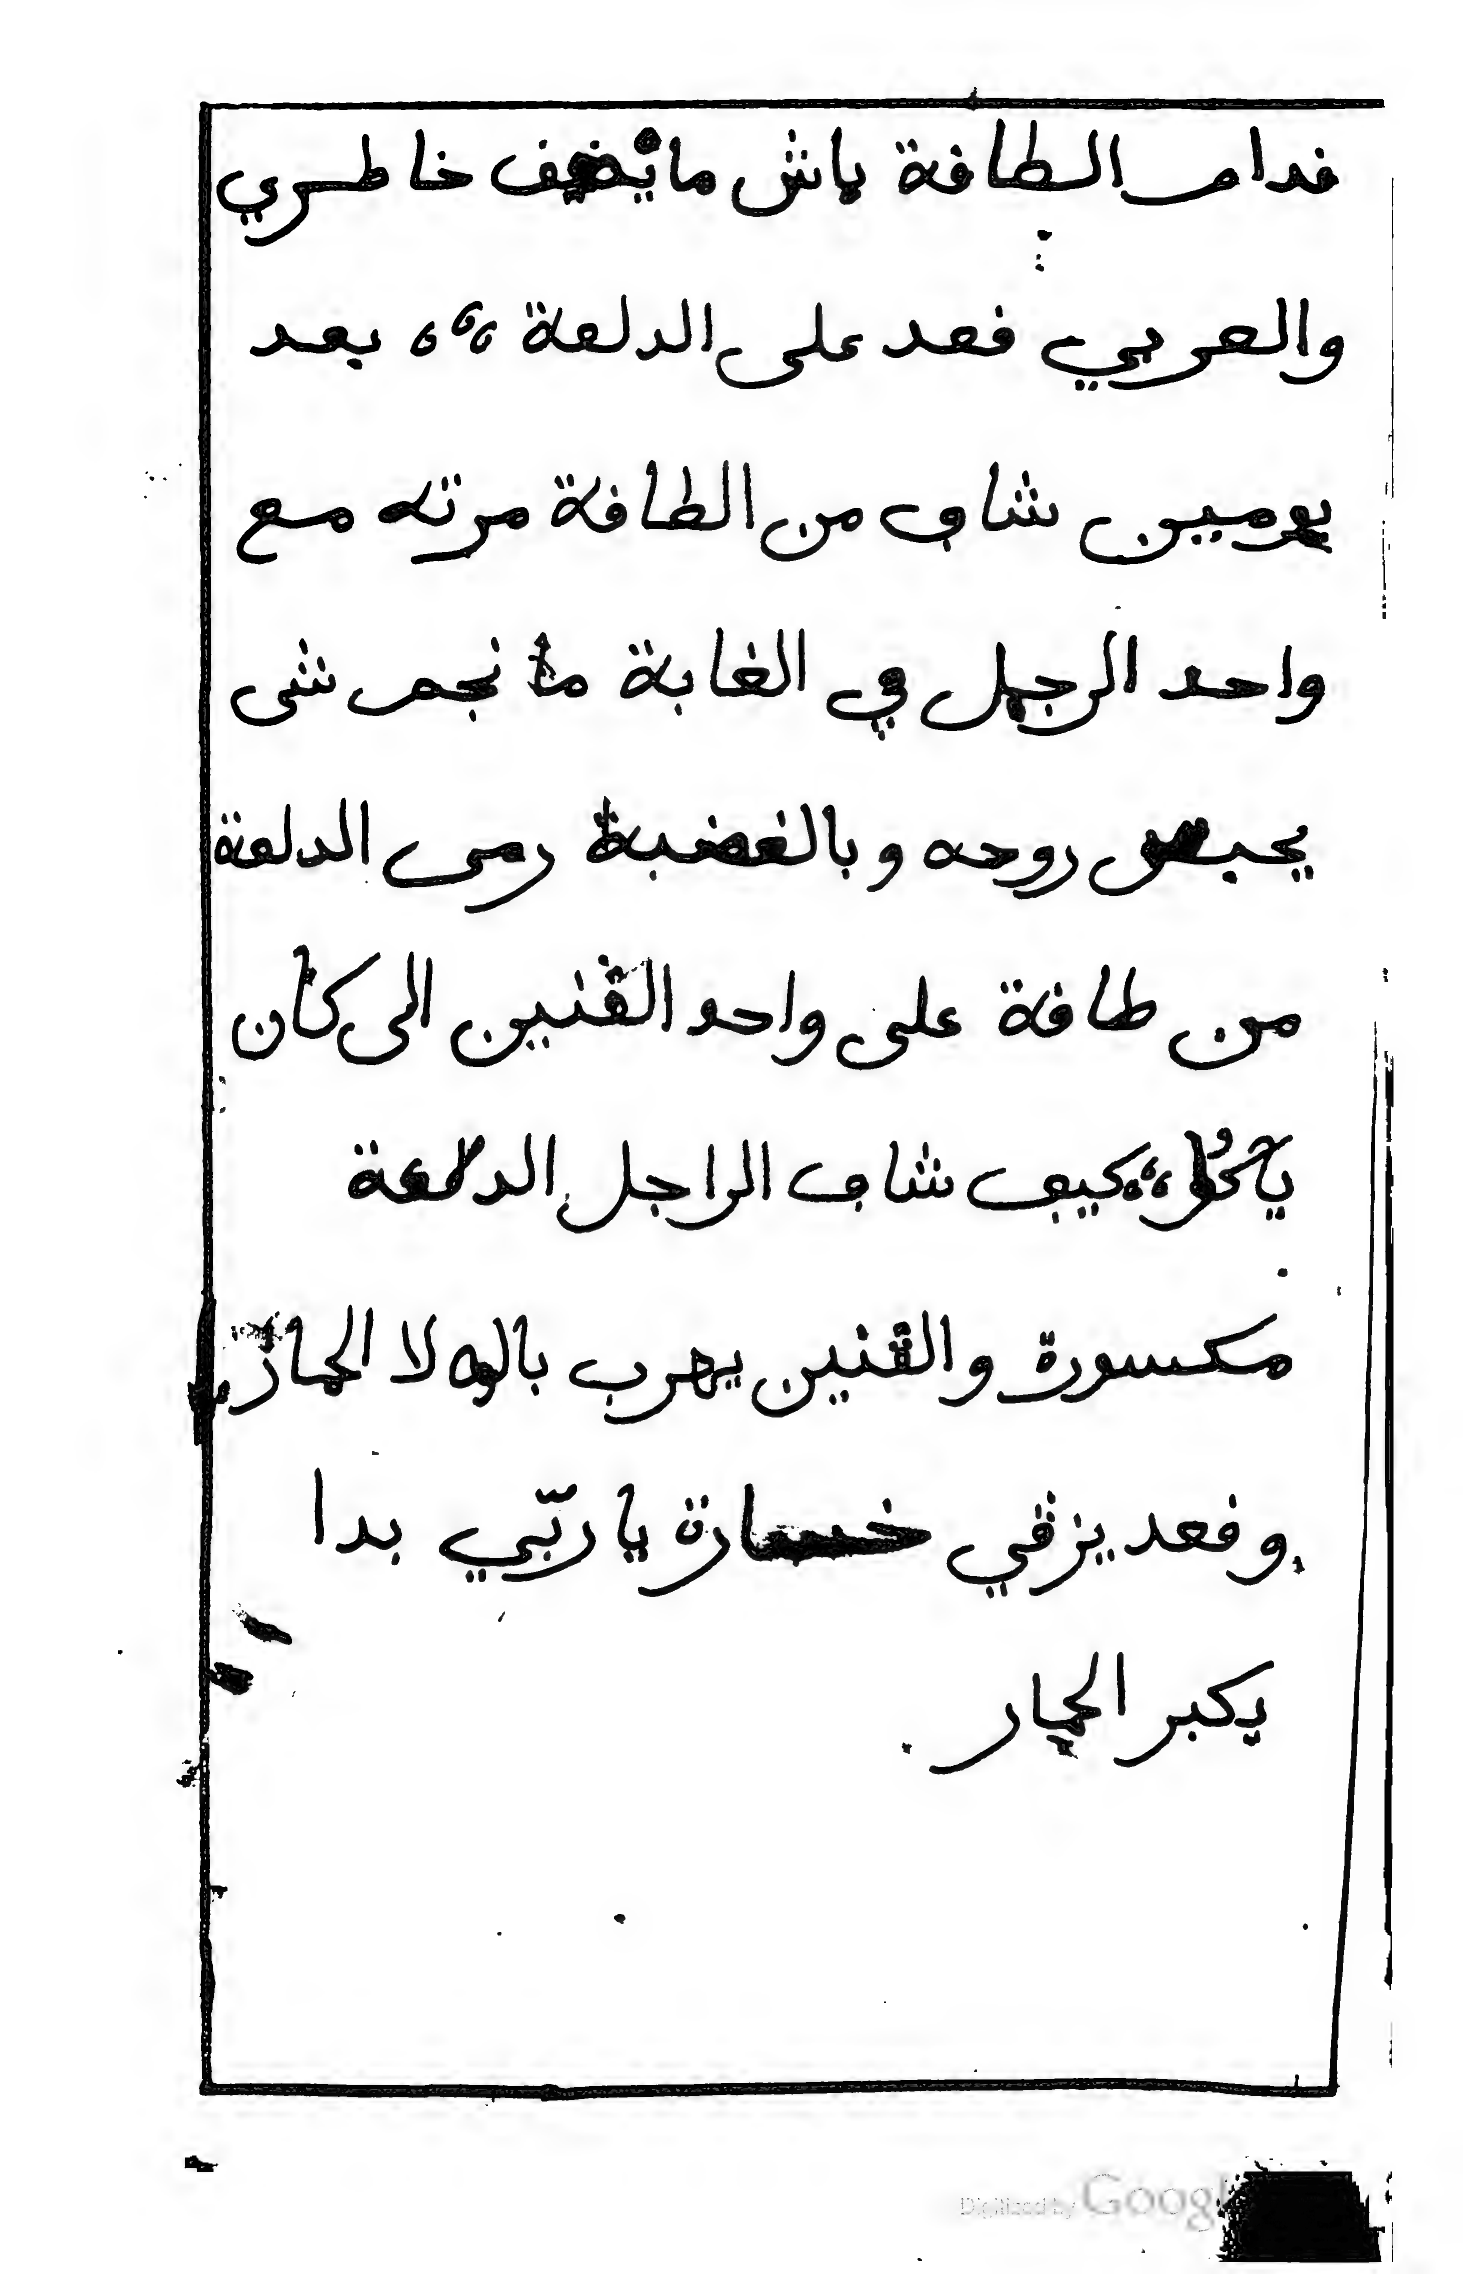 فدام الطافة باش ما يضيف خاطري
والعربي فعد على الدلعة ،،، بعد
يومين شاف من الطافة مرته مع
واحد الرجل في الغابة ما نجم شى
يحبس روحه وبالغضبة رمى الدلعة
من طافة على واحد الڤنين الى كان
ياكل ،،، كيف شاف الراجل الدلعة
مكسورة والڤنين يهرب بالوه لا الحمار
وفعد يزڤي خسارة يا ربّي بدا
يكبر الحمار
Digitized by Google